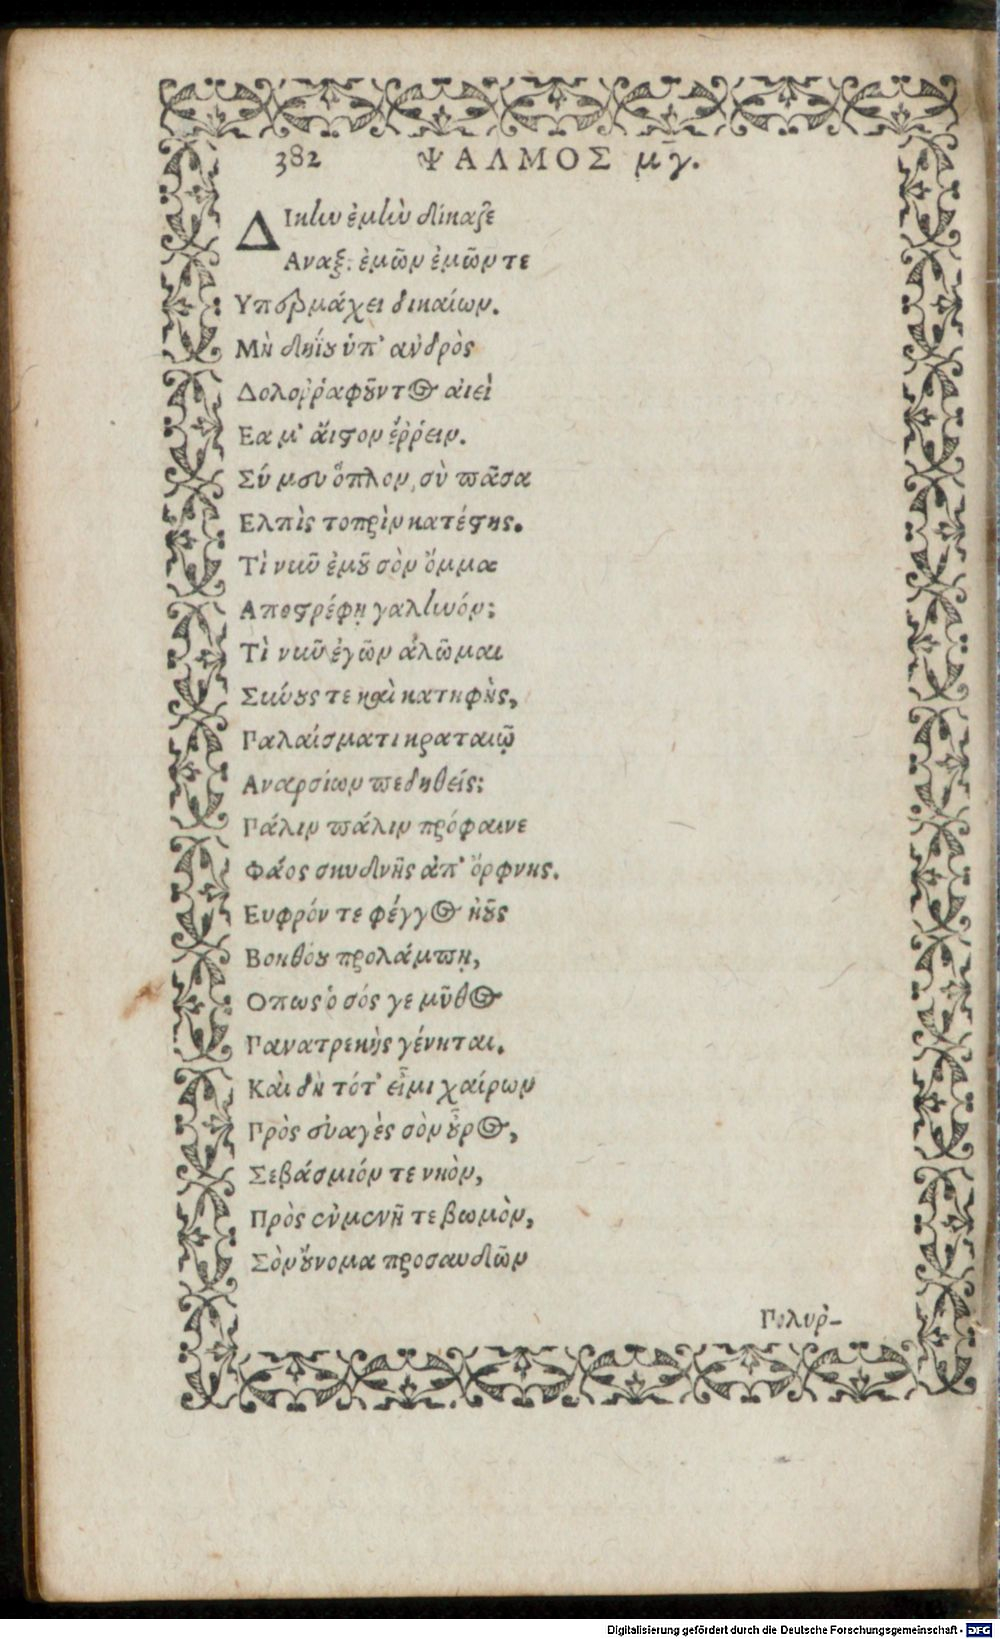 382 ΨΑΛΜΟΣ μγ.
ΔΙκην ἐμὴν δίκαζε
Αναξ. ἐμῶν ἐμῶν τε
Υπερμάχει δικαίων.
Μὴ δηΐου ὑπ' ανδρὸς
Δολοῤῥαφοῦντος αἰεὶ
Εα μ' ἄιστον ἔῤῥειν.
Σύ μου ὅπλον, σὺ πᾶσα
Ελπὶς τοπρὶν κατέστης.
Τὶ νῦν ἐμοῦ σὸν ὄμμα
Αποστρέφῃ γαληνόν;
Τὶ νῦν ἐγῶν ἀλῶμαι
Σκύθους τε καὶ κατηφὴς,
Παλαίσματι κραταιῷ
Αναρσίων πεδηθείς;
Πάλιν πάλιν πρόφαινε
Φάος σκυδνῆς ἀπ' ὄρφνης.
Ευφρόν τε φέγγος ἠοῦς
Βοηθόου προλάμπῃ,
Οπως ὁ σός γε μῦθος
Πανατρεκὴς γένηται.
Καὶ δὴ τότ' εἶμι χαίρων
Πρὸς ἐυαγὲς σὸν οὖρος,
Σεβάσμιόν τε νηὸν,
Πρὸς εὐμενῆ τε βωμὸν,
Σὸν οὔνομα προσαυδῶν
Πολυῤ-
Digitalisierung gefördert durch die Deutsche Forschungsgemeinschaft - DFG